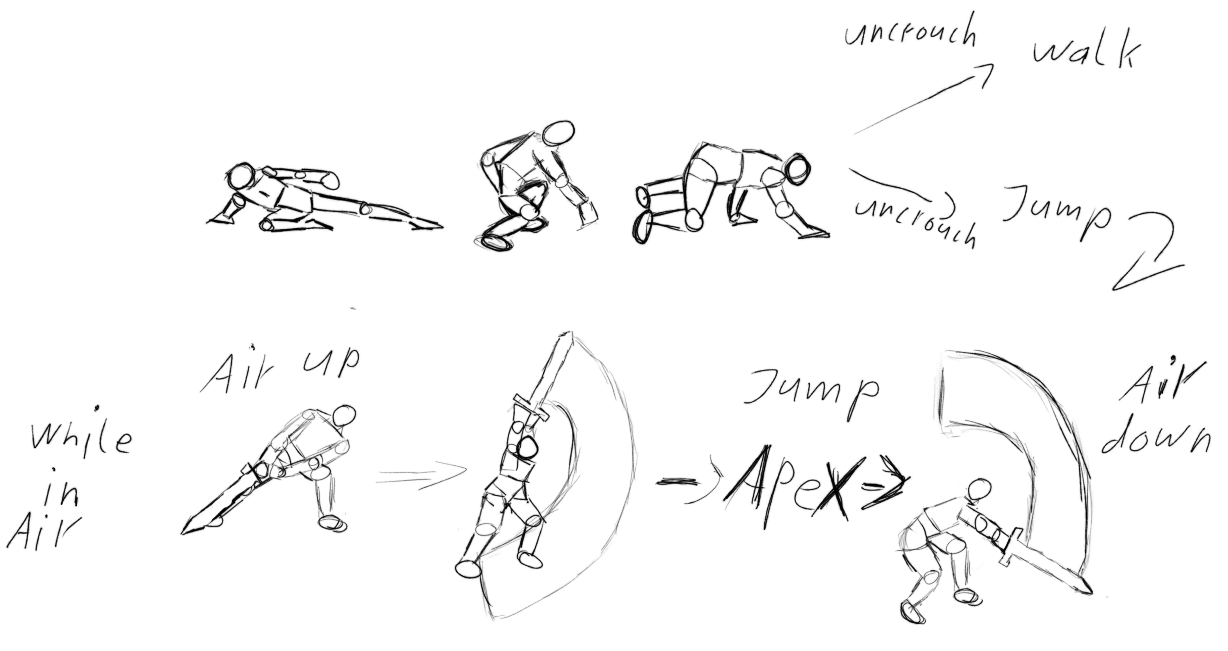 uncrouch
walk
uncrouch
Jump
Air up
while
in
Air
Jump
-> Apex ->
Air
down